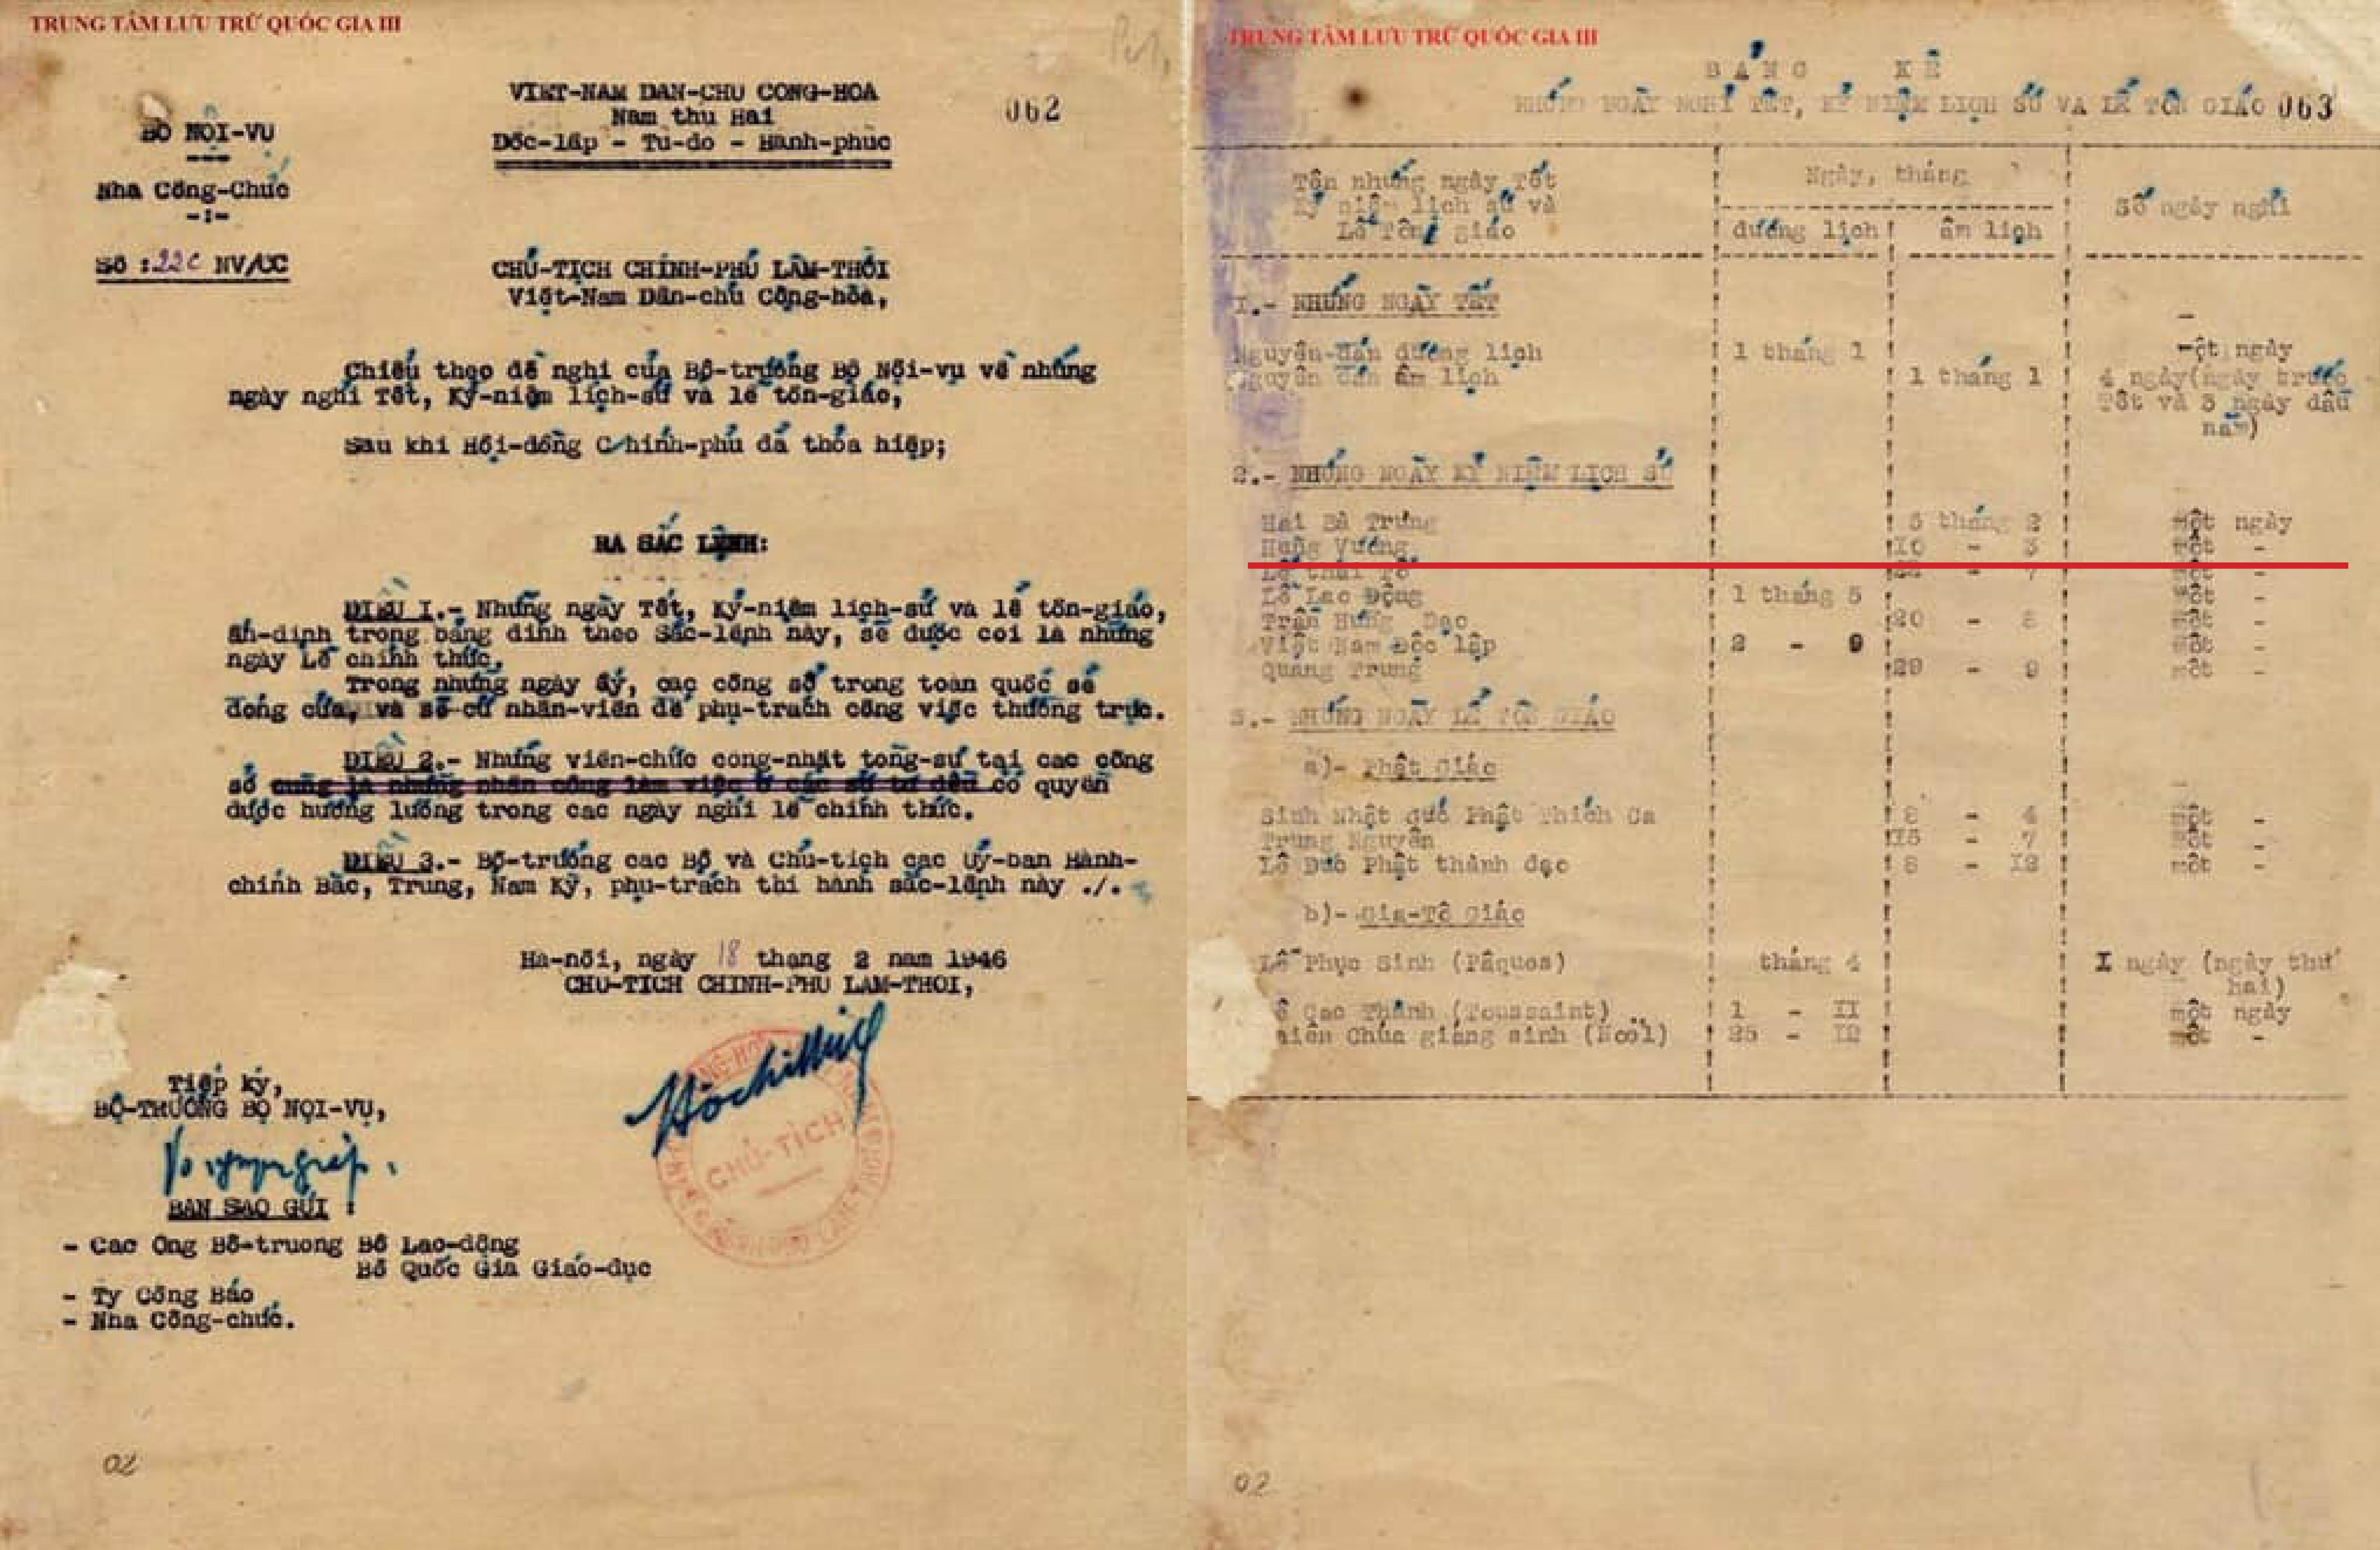 TRUNG TÂM LƯU TRỮ QUỐC GIA III
VIET-NAM DAN-CHU CONG-HOA
Nam thu Hai
Dốc-lâp - Tu-do - Hanh-phuc
062
BO NỘI-VỤ
Nha Công-Chức
-:-
Số :22c NV/CC
CHỦ-TỊCH CHÍNH-PHỦ LÂM-THỜI
Việt-Nam Dân-chủ Cộng-hòa,
Chiếu theo đề nghị của Bộ-trưởng Bộ Nội-vụ về những
ngày nghỉ Tết, Kỷ-niệm lịch-sử và lễ tôn-giáo,
Sau khi Hội-đồng Chính-phủ đã thỏa hiệp;
RA SẮC LỆNH:
ĐIỀU I.- Những ngày Tết, Kỷ-niệm lich-sử và lễ tôn-giáo,
ấn-dinh trong bảng dinh theo Sắc-lệnh này, sẽ được coi là những
ngày Lễ chính thức.
Trong những ngày ấy, các công sở trong toàn quốc sẽ
đóng cửa, và sẽ cử nhân-viên để phụ-trách công việc thường trực.
ĐIỀU 2.- Những viên-chức công-nhật tong-sự tại các công
sở cũng là những nhân công làm việc ở các sở tư đều có quyền
được hưởng lương trong các ngày nghỉ lễ chính thức.
ĐIỀU 3.- Bộ-trưởng các Bộ và Chủ-tịch các Uỷ-ban Hành-
chính Bắc, Trung, Nam Kỳ, phụ-trách thi hành sắc-lệnh này ./.
Ha-nội, ngày 18 thang 2 nam 1946
CHU-TICH CHINH-PHU LAM-THOI,
Hồ chí Minh
CHỦ-TỊCH
Tiếp ký,
BỘ-TRƯỞNG BỘ NỘI-VỤ,
BAN SAO GỬI :
- Cac Ong Bộ-truong Bộ Lao-động
Bộ Quốc Gia Giáo-dục
- Ty Công Báo
- Nha Công-chức.
02
TRUNG TÂM LƯU TRỮ QUỐC GIA III
BẢNG KÊ
NHỮNG NGÀY NGHỈ TẾT, KỶ NIỆM LỊCH SỬ VÀ LỄ TÔN GIÁO 063
Tên những ngày Tết
Kỷ niệm lịch sử và
Lễ Tôn giáo
Ngày, tháng
dương lịch
âm lịch
Số ngày nghỉ
1.- NHỮNG NGÀY TẾT
Nguyên-đán dương lịch 1 tháng 1 một ngày
Nguyên đán âm lịch 1 tháng 1 4 ngày(ngày trước
Tết và 3 ngày đầu
năm)
2.- NHỮNG NGÀY KỶ NIỆM LỊCH SỬ
Hai Bà Trưng 6 tháng 2 Một ngày
Hùng Vương 10 - 3 Một -
Lê thái Tổ - 7 một -
Lễ Lao Động 1 tháng 5 một -
Trần Hưng Đạo 20 - 8 một -
Việt Nam Độc lập 2 - 9 một -
Quang Trung 29 - 9 một -
3.- NHỮNG NGÀY LỄ TÔN GIÁO
a)- Phật Giáo
Sinh Nhật đức Phật Thích Ca 8 - 4 một -
Trung Nguyên 15 - 7 một -
Lễ Đức Phật thành đạo 8 - 12 một -
b)- Gia-Tô Giáo
Lễ Phục Sinh (Pâques) tháng 4 I ngày (ngày thứ
hai)
Lễ Cac Thánh (Toussaint) 1 - II một ngày
Thiên Chúa giáng sinh (Noël) 25 - I2 một -
02